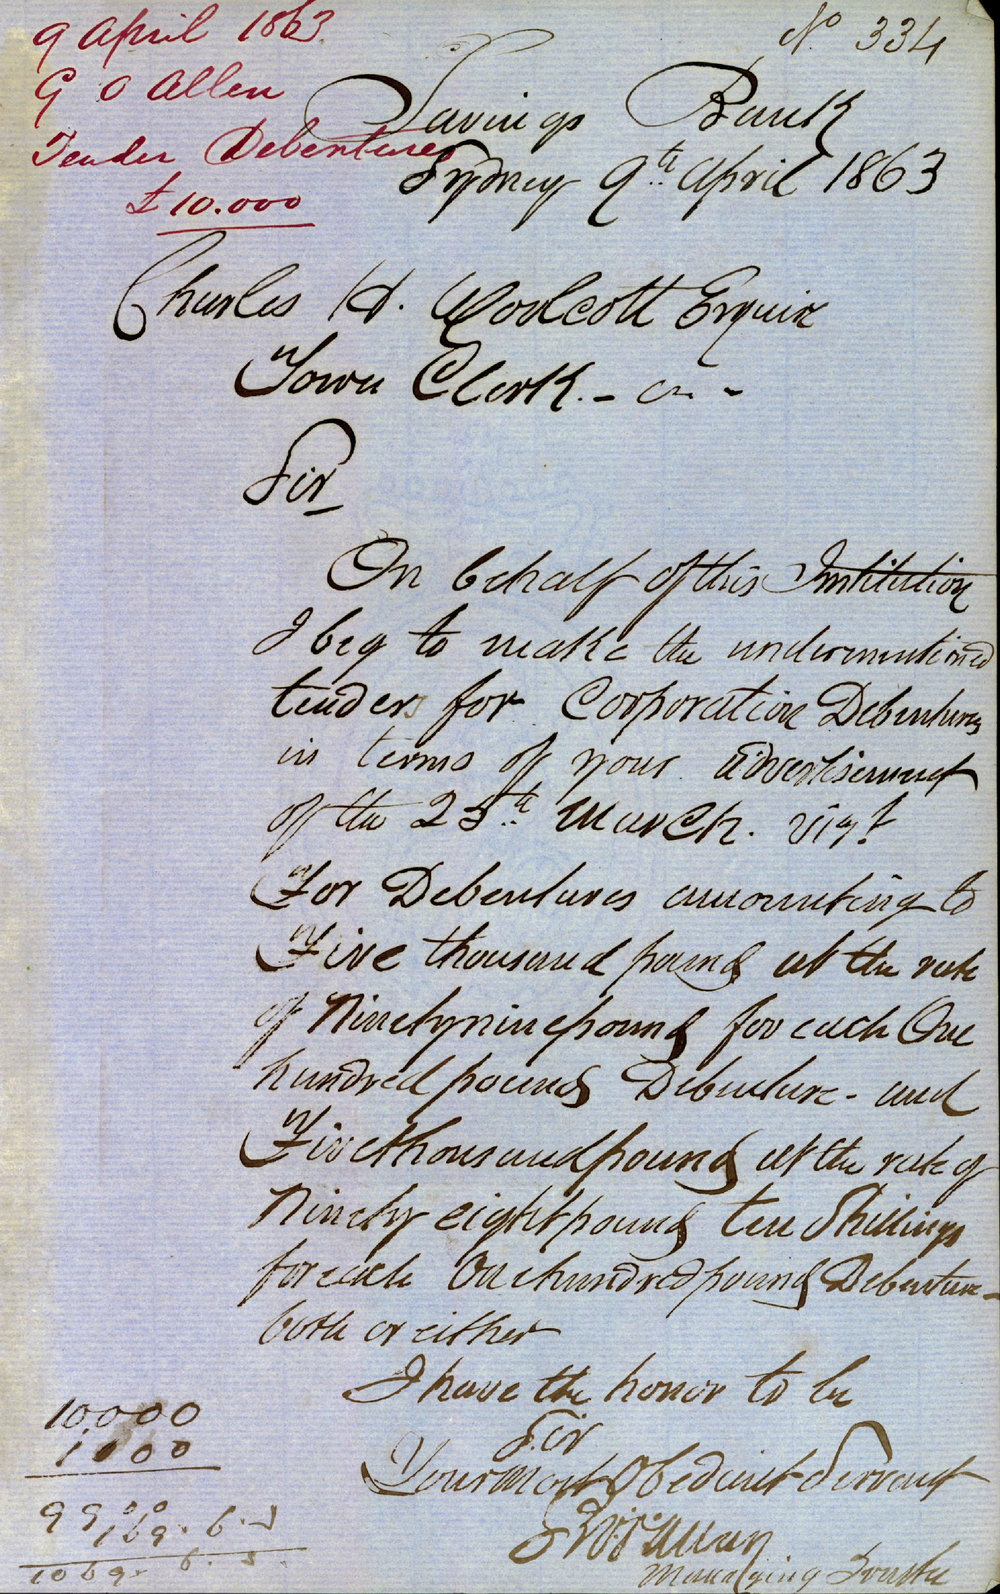 9 April 1863
G O Allen
Tender Debentures
£10.000
No 334
Savings Bank
Sydney 9th April 1863
Charles H. Woolcott Esquire
Town Clerk
Sir
On behalf of this Institution
I beg to make the undermentioned
tenders for Corporation Debentures
in terms of your advertisement
of the 25th March. vizt
For Debentures amounting to
Five thousand pounds at the rate
of Ninetynine pounds for each One
hundred pounds Debenture - and
Five thousand pounds at the rate of
Ninety eight pounds ten Shillings
for each One hundred pounds Debenture -
both or either
I have the honor to be
Sir
Your Most Obedient Servant
Allen
Managing Trustee
10,000
1000